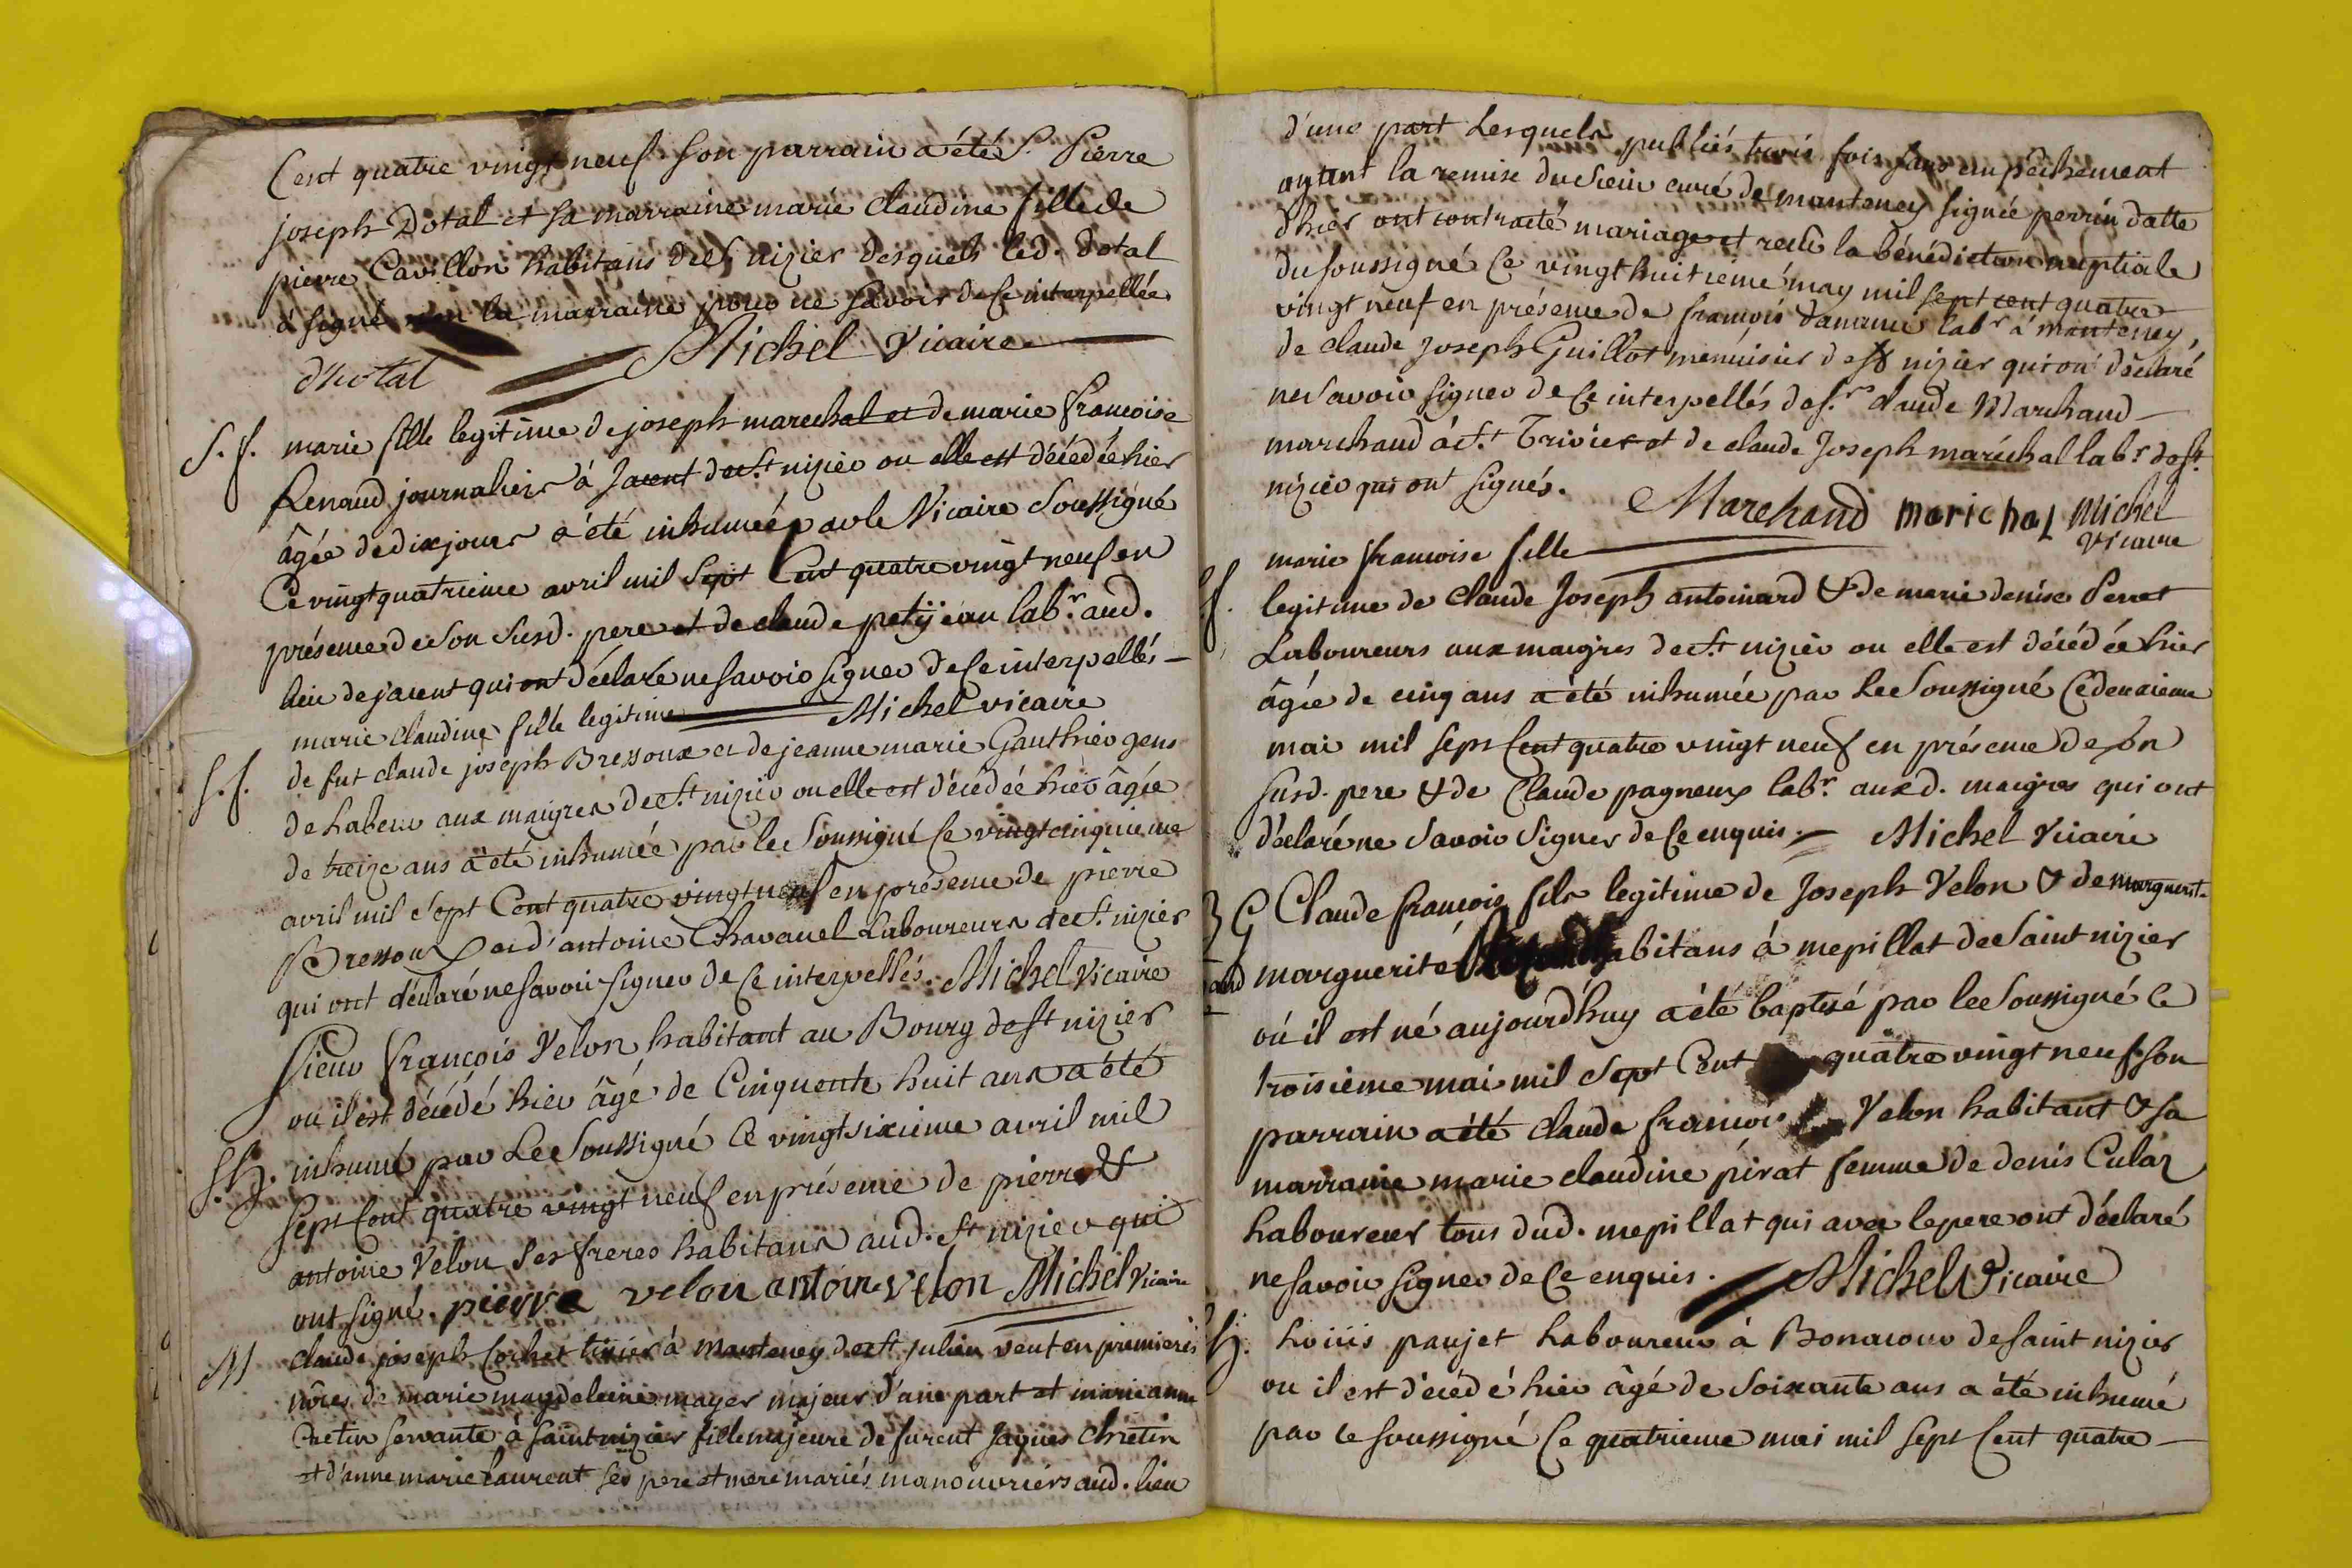 Cent quatre vingt neuf son parrain a été S.r Pierre
joseph Dotal et sa marraine marie Claudine fille de
pierre Cavillon habitans de St nizier desquels led. dotal
à signé non la marraine pour ne savoir de ce interpellée
Michel Vicaire
dhotal
S. f. marie fille legitime de joseph marechal et de marie francoise
Renaud journaliers à Jarent de St nizier ou elle est décédée hier
âgée de dix jours a été inhumée par le Vicaire Soussigné
Ce vingt quatrieme avril mil Sept Cent quatre vingt neuf en
présence de Son Susd. pere et de claude petijean labr. aud.
lieu de jarent qui ont déclaré ne savoir signer de Ce interpellés -
marie claudine fille legitime Michel vicaire
S. f. de fut claude joseph Bressoux et de jeanne marie Gauthier gens
de Labeur aux maigres de St nizier ou elle est décédée hier âgée
de treize ans a été inhumée par le Soussigné Ce vingt cinquieme
avril mil Sept Cent quatre vingt neuf en présence de pierre
Bressoux et d'antoine Chavanel Laboureurs de St nizier
qui ont déclaré ne savoir signer de Ce interpellés. Michel Vicaire
Sieur francois Velon habitant au Bourg de St nizier
ou il est décédé hier âgé de Cinquente huit ans a été
S. h. inhumé par Le Soussigné Ce vingt sixieme avril mil
Sept Cent quatre vingt neuf en présence de pierre &
antoine Velon Ses freres habitans aud. St nizier qui
ont signé. pierre velon antoine velon Michel Vicaire
M claude joseph Cochet tixier à manteney de St julien veut en premieres
nôces de marie magdeleine mager majeur d'une part et marie anne
Cretin servante à saint nizier fille majeure de furent Jaques chretin
et d'anne marie Laurent ses pere et mere mariés manouvriers aud. lieu
d'une part Lesquels publiés trois fois sans empêchement
ayant la remise du Sieur curé de manteney signée perrin datte
d'hier ont contracté mariage et reçu la bénédiction nuptiale
du soussigné Ce vingt huitieme may mil sept cent quatre
vingt neuf en présence de francois danancié labr à manteney,
de claude Joseph Guillot menuisier de St nizier qui ont déclaré
ne savoir signer de Ce interpellés de sr. claude Marchand -
marchand à St Trivier et de claude Joseph maréchal labr. de St.
nizier qui ont signés.
Marchand marichal Michel
Vicaire
marie francoise fille
S. f. legitime de Claude Joseph antoinard & de marie denise Perret
Laboureurs aux maigres de St nizier ou elle est décédée hier
âgée de cinq ans a été inhumée par Le Soussigné Ce deuxieme
mai mil sept Cent quatre vingt neuf en présence de son
susd. pere & de Claude pagneux labr. auxd. maigres qui ont
déclaré ne Savoir Signer de Ce enquis. Michel Vicaire
B G Claude francois fils legitime de Joseph Velon & de marguerit-
marguerite habitans à mepillat de Saint nizier
où il est né aujourdhuy a été baptisé par le Soussigné Ce
troisieme mai mil Sept Cent quatre vingt neuf. son
parrain a été claude francois Velon habitant & sa
marraine marie claudine pirat femme de denis Culaz
Laboureur tous dud. mepillat qui avec le pere ont déclaré
ne savoir signer de Ce enquis. Michel Vicaire
h. Loüis paujet Laboureur à Bonacour de saint nizier
ou il est décédé hier âgé de soixante ans a été inhumé
par le soussigné Ce quatrieme mai mil sept Cent quatre -